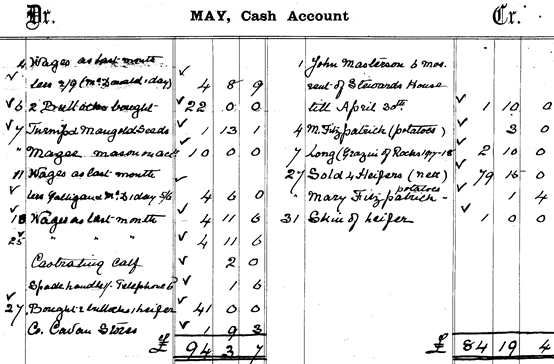 Dr. MAY, Cash Account Cr.
4 Wages as last month
less 2/9 (McDonald 1 day) 4 8 9
6 2 Bullocks bought 22 0 0
7 Turnip & Mangold Seeds 1 13 1
" Magee mason on acct 10 0 0
11 Wages as last month
less Galligan & McD 1 day 5/6 4 6 0
18 Wages as last month 4 11 6
25 " " " 4 11 6
Castrating calf 2 0
Spade handle/- Telephone 6d 1 6
27 Bought 2 bullocks 1 heifer 41 0 0
Co. Cavan Stores 1 9 3
£ 94 3 7
1 John Masterson 6 mos.
rent of Stewards House
till April 30th 1 10 0
4 M. Fitzpatrick (potatoes) 3 0
7 Long (Grazing of Rocks 1917-18 2 10 0
27 Sold 4 Heifers (nett) 79 15 0
" Mary Fitzpatrick - potatoes 1 4
31 Skin of heifer 1 0 0
£ 84 19 4